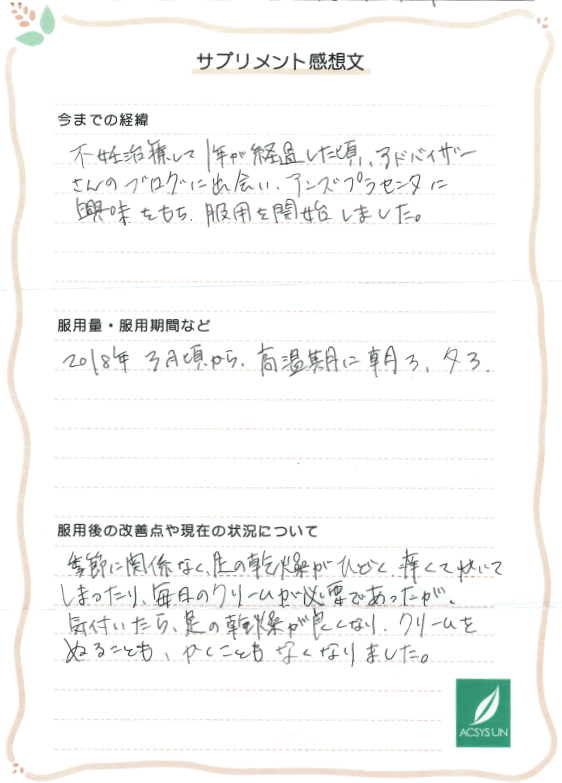 サプリメント感想文
今までの経緯
不妊治療して1年が経過した頃、アドバイザー
さんのブログに出会い、アンズプラセンタに
興味をもち、服用を開始しました。
服用量・服用期間など
2018年 3月頃から、高温期に朝3、夕3.
服用後の改善点や現在の状況について
季節に関係なく、足の乾燥がひどく 痒くて掻いて
しまったり、毎日のクリームが必要であったが、
気付いたら、足の乾燥が良くなり、クリームを
ぬることも、かくこともなくなりました。
ACSYSUN